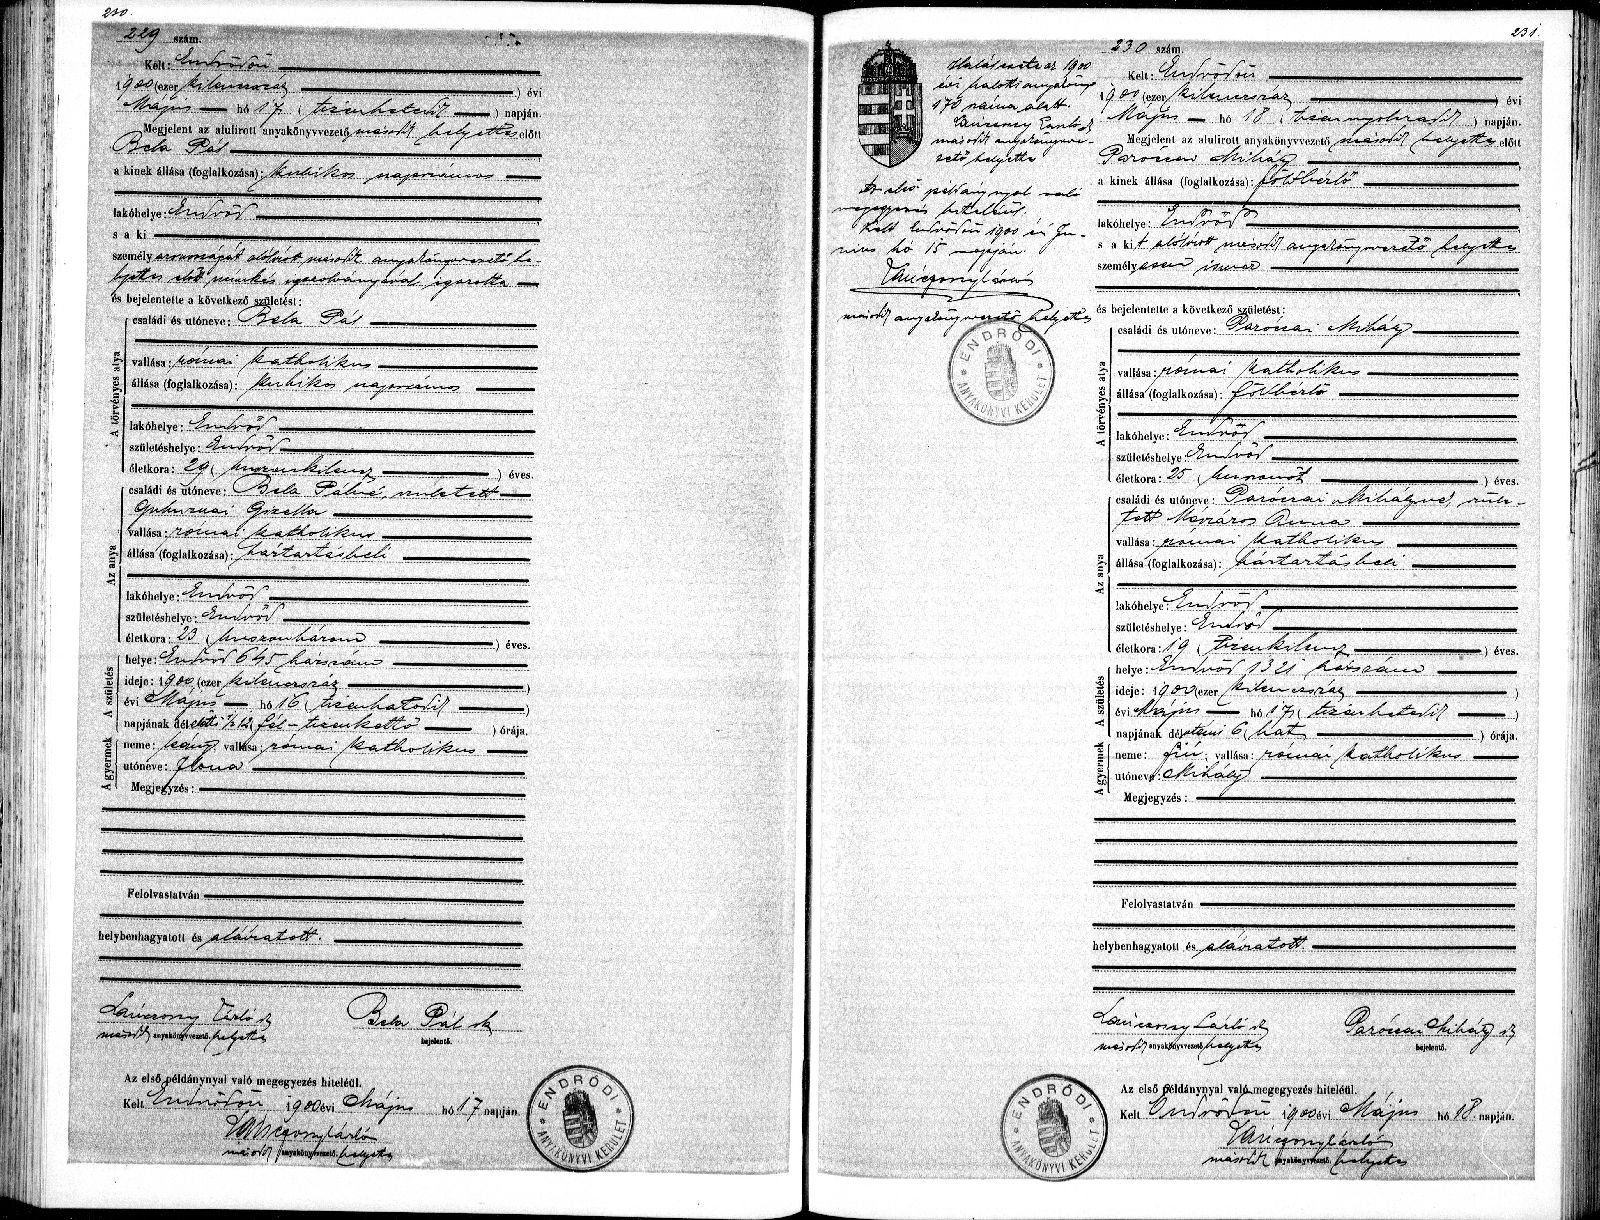 230.
229 szám.
Kelt: Endrődön
1900 (ezer kilencszáz ) évi
Május hó 17 ( tizenhetedik ) napján.
Megjelent az alulirott anyakönyvvezető második helyettes előtt
Bela Pál
a kinek állása (foglalkozása): kubikos napszámos
lakóhelye: Endrőd
s a ki
személyazonosságát alólirott második anyakönyvvezető he-
lyettes előtt munkás igazolványával igazolta
és bejelentette a következő születést:
A törvényes atya
családi és utóneve: Bela Pál
vallása: római katholikus
állása (foglalkozása): kubikos napszámos
lakóhelye: Endrőd
születéshelye: Endrőd
életkora: 29 ( huszonkilencz ) éves.
Az anya
családi és utóneve: Bela Pálné, született
Gizella
vallása: római katholikus
állása (foglalkozása): háztartásbeli
lakóhelye: Endrőd
születéshelye: Endrőd
életkora: 23 ( huszonhárom ) éves.
A születés
helye: Endrőd 645 házszám
ideje: 1900 (ezer kilencszáz )
évi Május hó 16 ( tizenhatodik )
napjának délelőtti ½12 ( fél-tizenkettő ) órája.
A gyermek
neme: leány, vallása: római katholikus
utóneve: Ilona
Megjegyzés:
Felolvastatván
helybenhagyatott és aláiratott.
Lanczony László sk
Bela Pál sk
második anyakönyvvezető helyettes
bejelentő.
Az első példánynyal való megegyezés hiteléül.
Kelt Endrődön 1900 évi Május hó 17 napján.
Lanczony László
második anyakönyvvezető helyettes
ENDRŐDI
* ANYAKÖNYVI KERÜLET *
231.
Halálesete az 1900
évi halotti anyakönyv
170 száma alatt.
Lanczony László sk
második anyakönyvve-
zető helyettes
Az első példánynyal való
megegyezés hiteléül.
Kelt Endrődön 1900 évi Ju-
nius hó 15 napján
Lanczony László
második anyakönyvvezető helyettes
ENDRŐDI
* ANYAKÖNYVI KERÜLET *
230 szám.
Kelt: Endrődön
1900 (ezer kilencszáz ) évi
Május hó 18 ( tizennyolczadik ) napján.
Megjelent az alulirott anyakönyvvezető második helyettes előtt
Parócai Mihály
a kinek állása (foglalkozása): földbérlő
lakóhelye: Endrőd
s a kit alólirott második anyakönyvvezető helyettes
személyesen ismer
és bejelentette a következő születést:
A törvényes atya
családi és utóneve: Parócai Mihály
vallása: római katholikus
állása (foglalkozása): földbérlő
lakóhelye: Endrőd
születéshelye: Endrőd
életkora: 25 ( huszonöt ) éves.
Az anya
családi és utóneve: Parócai Mihályné, szüle-
tett Mészáros Anna
vallása: római katholikus
állása (foglalkozása): háztartásbeli
lakóhelye: Endrőd
születéshelye: Endrőd
életkora: 19 ( tizenkilencz ) éves.
A születés
helye: Endrőd 1321 házszám
ideje: 1900 (ezer kilencszáz )
évi Május hó 17 ( tizenhetedik )
napjának délutáni 6 ( hat ) órája.
A gyermek
neme: fiú, vallása: római katholikus
utóneve: Mihály
Megjegyzés:
Felolvastatván
helybenhagyatott és aláiratott.
Lanczony László sk
Parócai Mihály sk
második anyakönyvvezető helyettes
bejelentő.
Az első példánynyal való megegyezés hiteléül.
Kelt Endrődön 1900 évi Május hó 18 napján.
Lanczony László
második anyakönyvvezető helyettes
ENDRŐDI
* ANYAKÖNYVI KERÜLET *